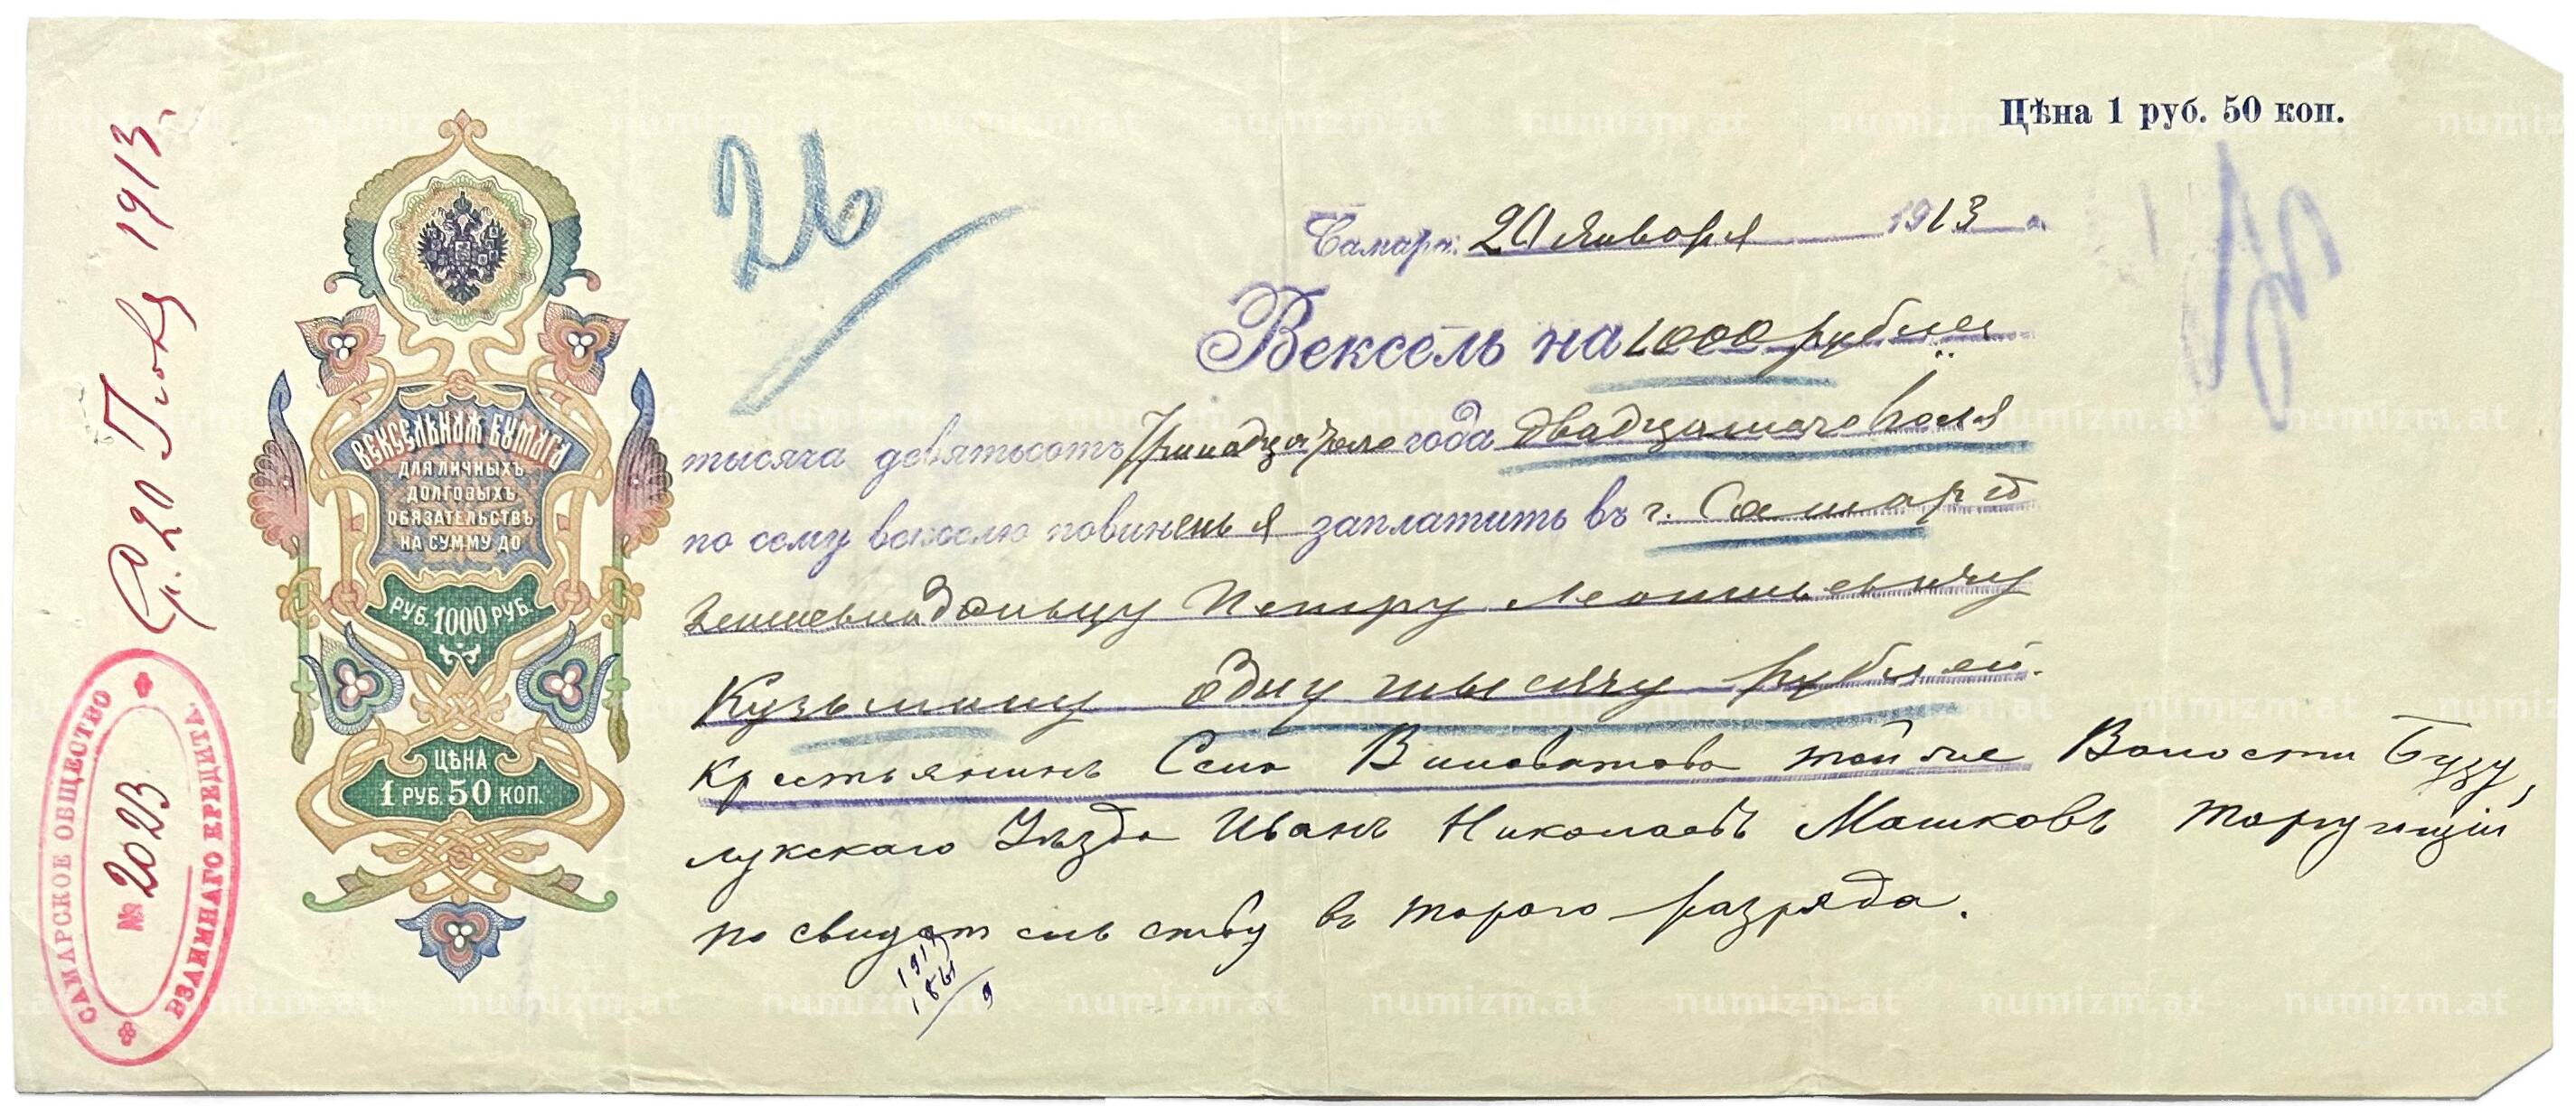 Цѣна 1 руб. 50 коп.
26
Самара. 20 Января 1913 г.
Вексель на 1000 рублей
тысяча девятьсотъ тринадцатаго года двадцатаго Іюля
по сему векселю повиненъ я заплатить въ г. Самарѣ
землевладѣльцу Петру Леонтьевичу
Кузьмину одну тысячу рублей.
Крестьянинъ Села Виловатова той же Волости Бузу,
лукскаго Уѣзда Иванъ Николаевъ Машковъ торгующій
по свидетельству второго разряда.
ВЕКСЕЛЬНАЯ БУМАГА
ДЛЯ ЛИЧНЫХЪ
ДОЛГОВЫХЪ
ОБЯЗАТЕЛЬСТВЪ
НА СУММУ ДО
РУБ. 1000 РУБ.
ЦѢНА
1 РУБ. 50 КОП.
Ср. 20 Іюля 1913.
САМАРСКОЕ ОБЩЕСТВО
ВЗАИМНАГО КРЕДИТА.
№ 2023
1913
numizm.at